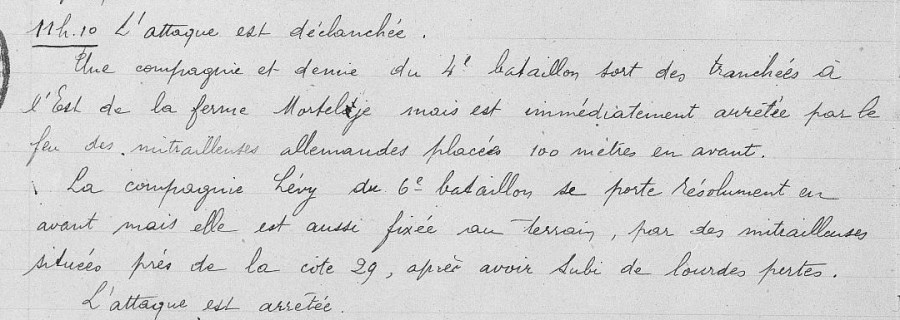 11h.10 L'attaque est déclanchée.
Une compagnie et demie du 4e bataillon sort des tranchées à
l'Est de la ferme Morteltje mais est immédiatement arrêtée par le
feu des mitrailleuses allemandes placées 100 mètres en avant.
La compagnie Lévy du 6e bataillon se porte résolument en
avant mais elle est aussi fixée au terrain, par des mitrailleuses
situées près de la cote 29, après avoir subi de lourdes pertes.
L'attaque est arrêtée.